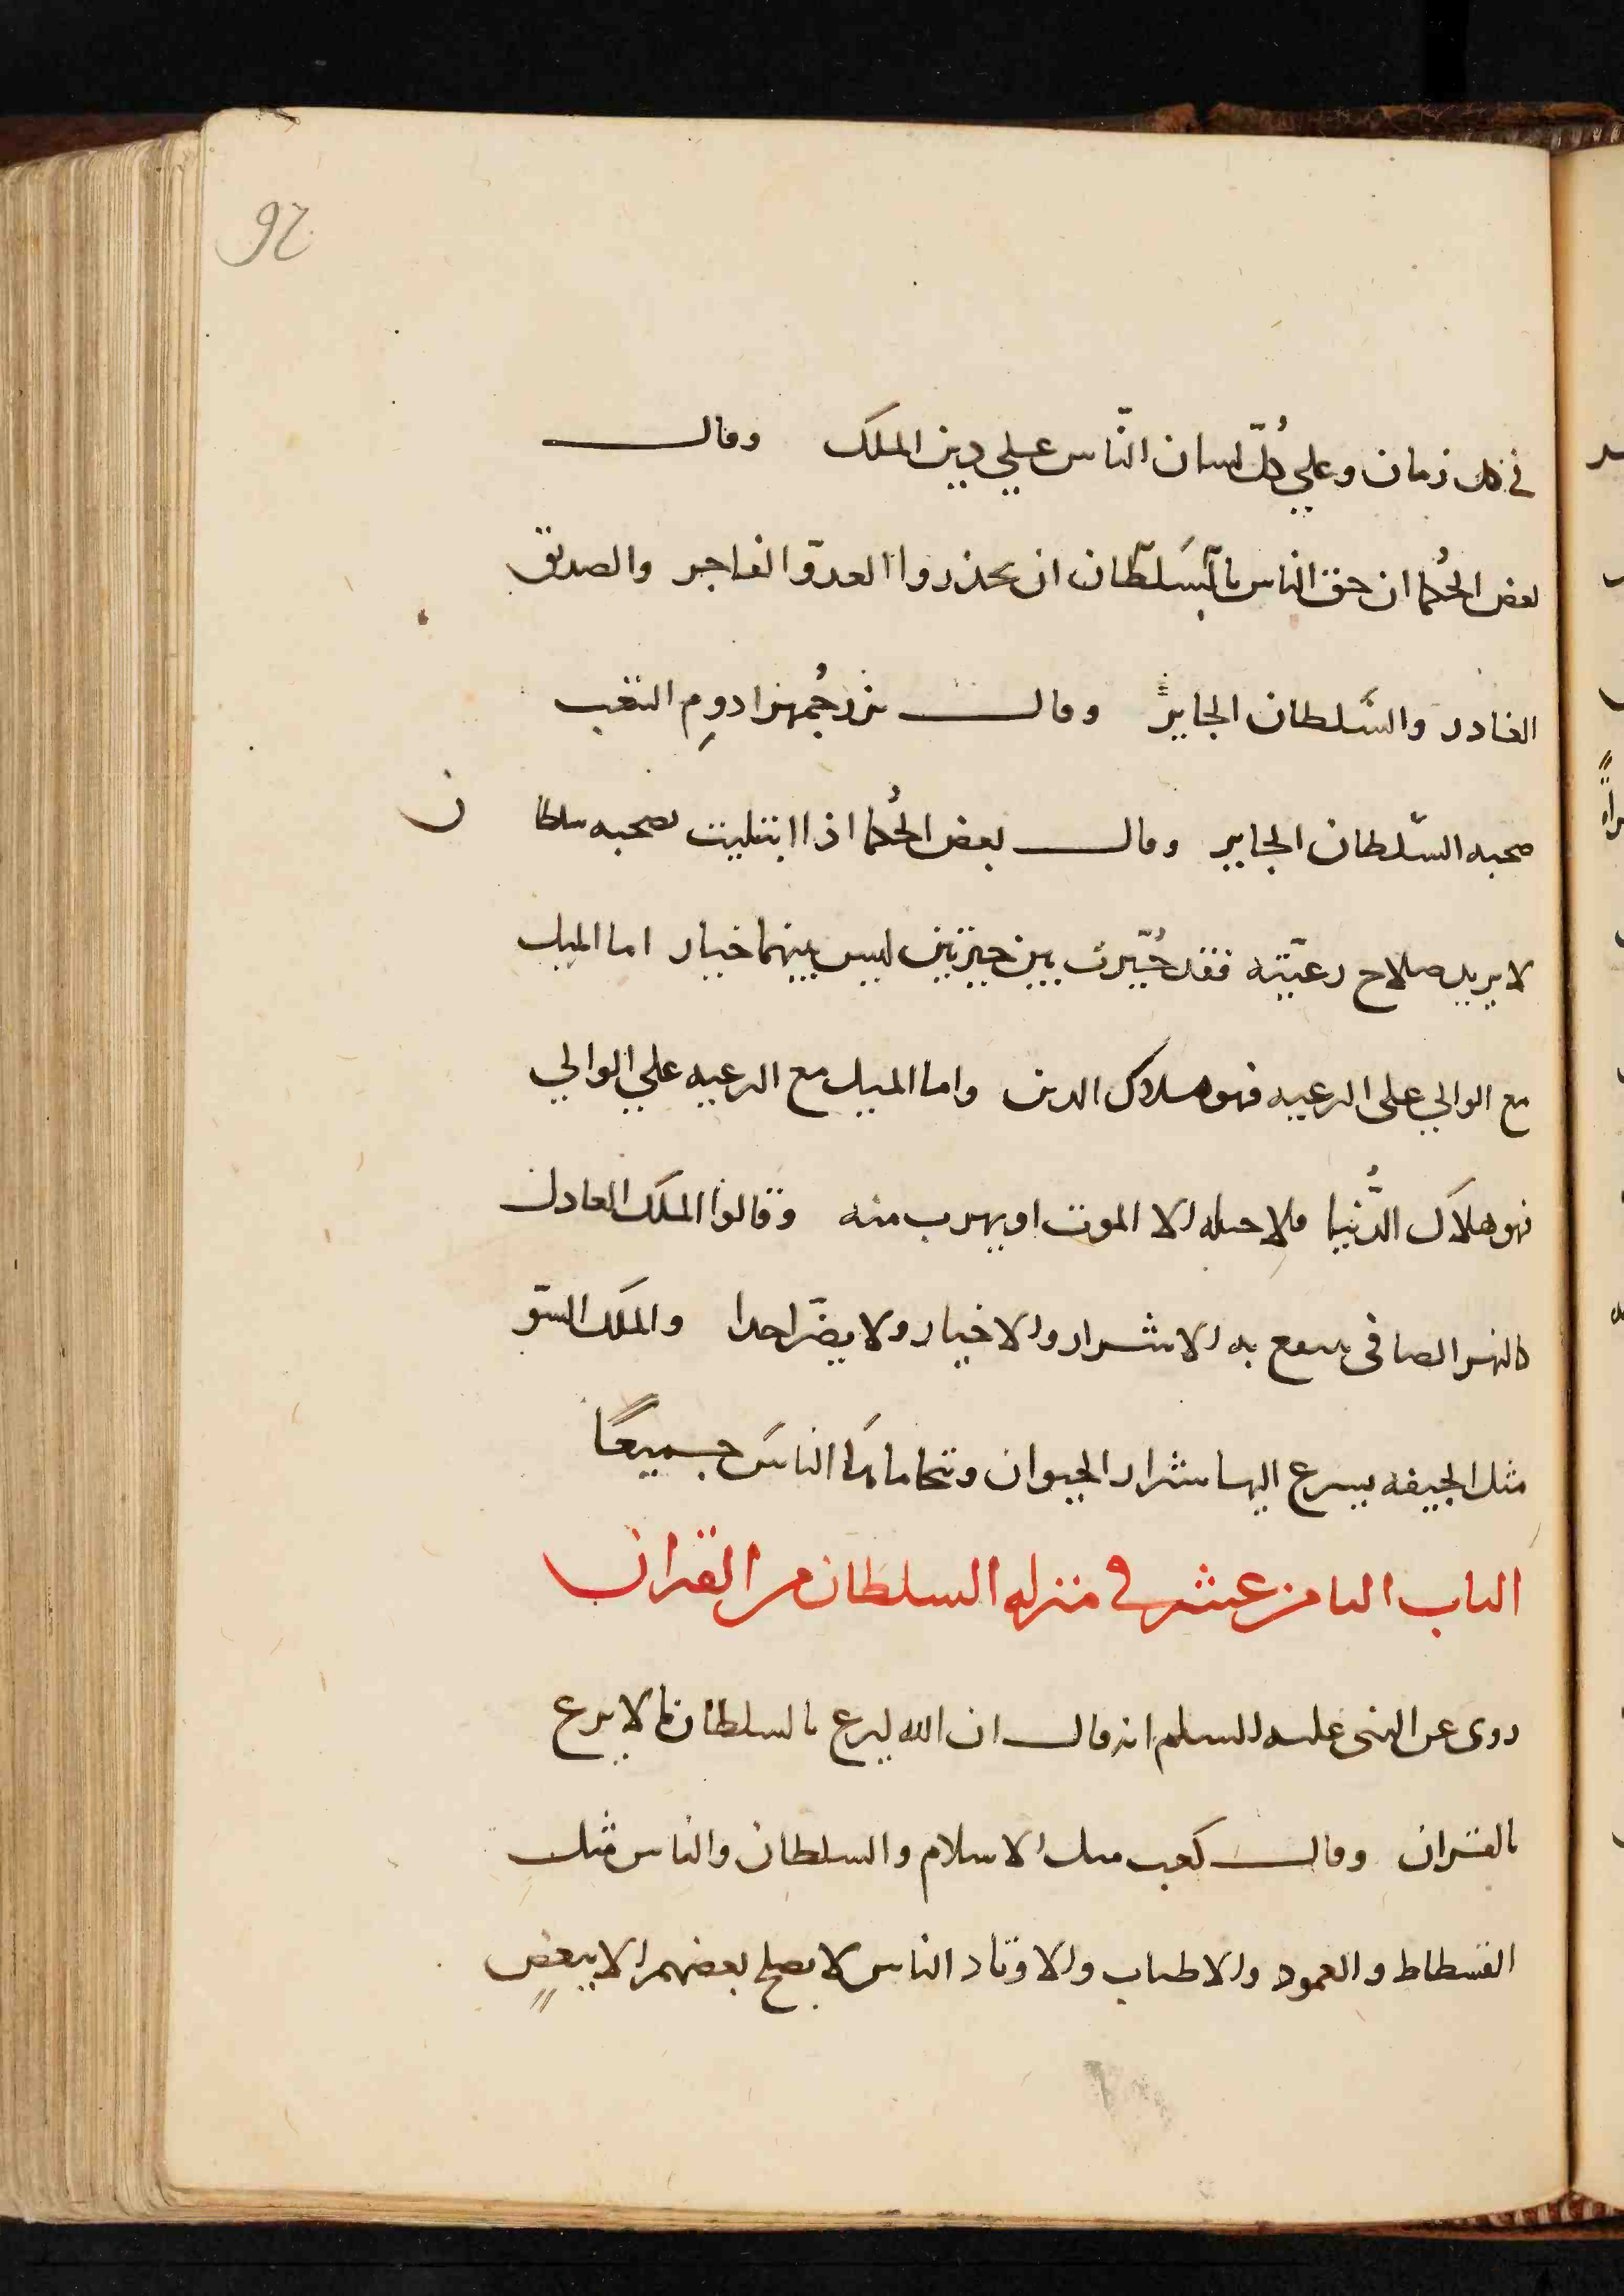 92
في كل زمان وعلي كُلّ لسان النّاس علي دين الملَك وقال
بعض الحُكما ان حق الناس بالسَلطان ان يحذروا العدوّ الفاجر والصديق
الغادر والسّلطان الجاير وقال بزرجُمهر ادوم التعب
صحبه السّلطان الجاير وقال بعض الحُكما اذا ابتليت بصحبه سلطان
لا يريد صلاح رعيّته فقد خُيّرت بين خيرتين ليس بينهما خيار اما الميل
مع الوالي على الرعيه فهو هلاك الدين واما الميل مع الرعيه علي الوالي
فهو هلاك الدُّنيا فلا حيله الا الموت او يهرب منه وقالوا الملك العادل
كالنهر الصافى ينتفع به الاشرار والاخيار ولا يضّر احدا والملَك السوّ
مثل الجيفه يسرع اليها شرار الحيوان وتتحاماها الناسَ جميعًا
الباب الثامن عشر في منزله السلطان من القران
روى عن النبى عليه السلم انه قال ان الله ليزع بالسلطان ما لا يزع
بالقران وقال كعب مثل الاسلام والسلطان والناس مثل
الفسطاط والعمود والاطناب والاوتاد الناس لا يصلح بعضهم الا ببعضٍ